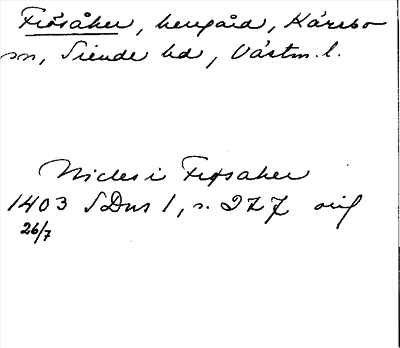 Frösåker, herrgård, Kärrbo
sn, Siende hd, Västm. l.
Niclis i Frøsaker
1403 SDns 1, s. 277 orig
26/7